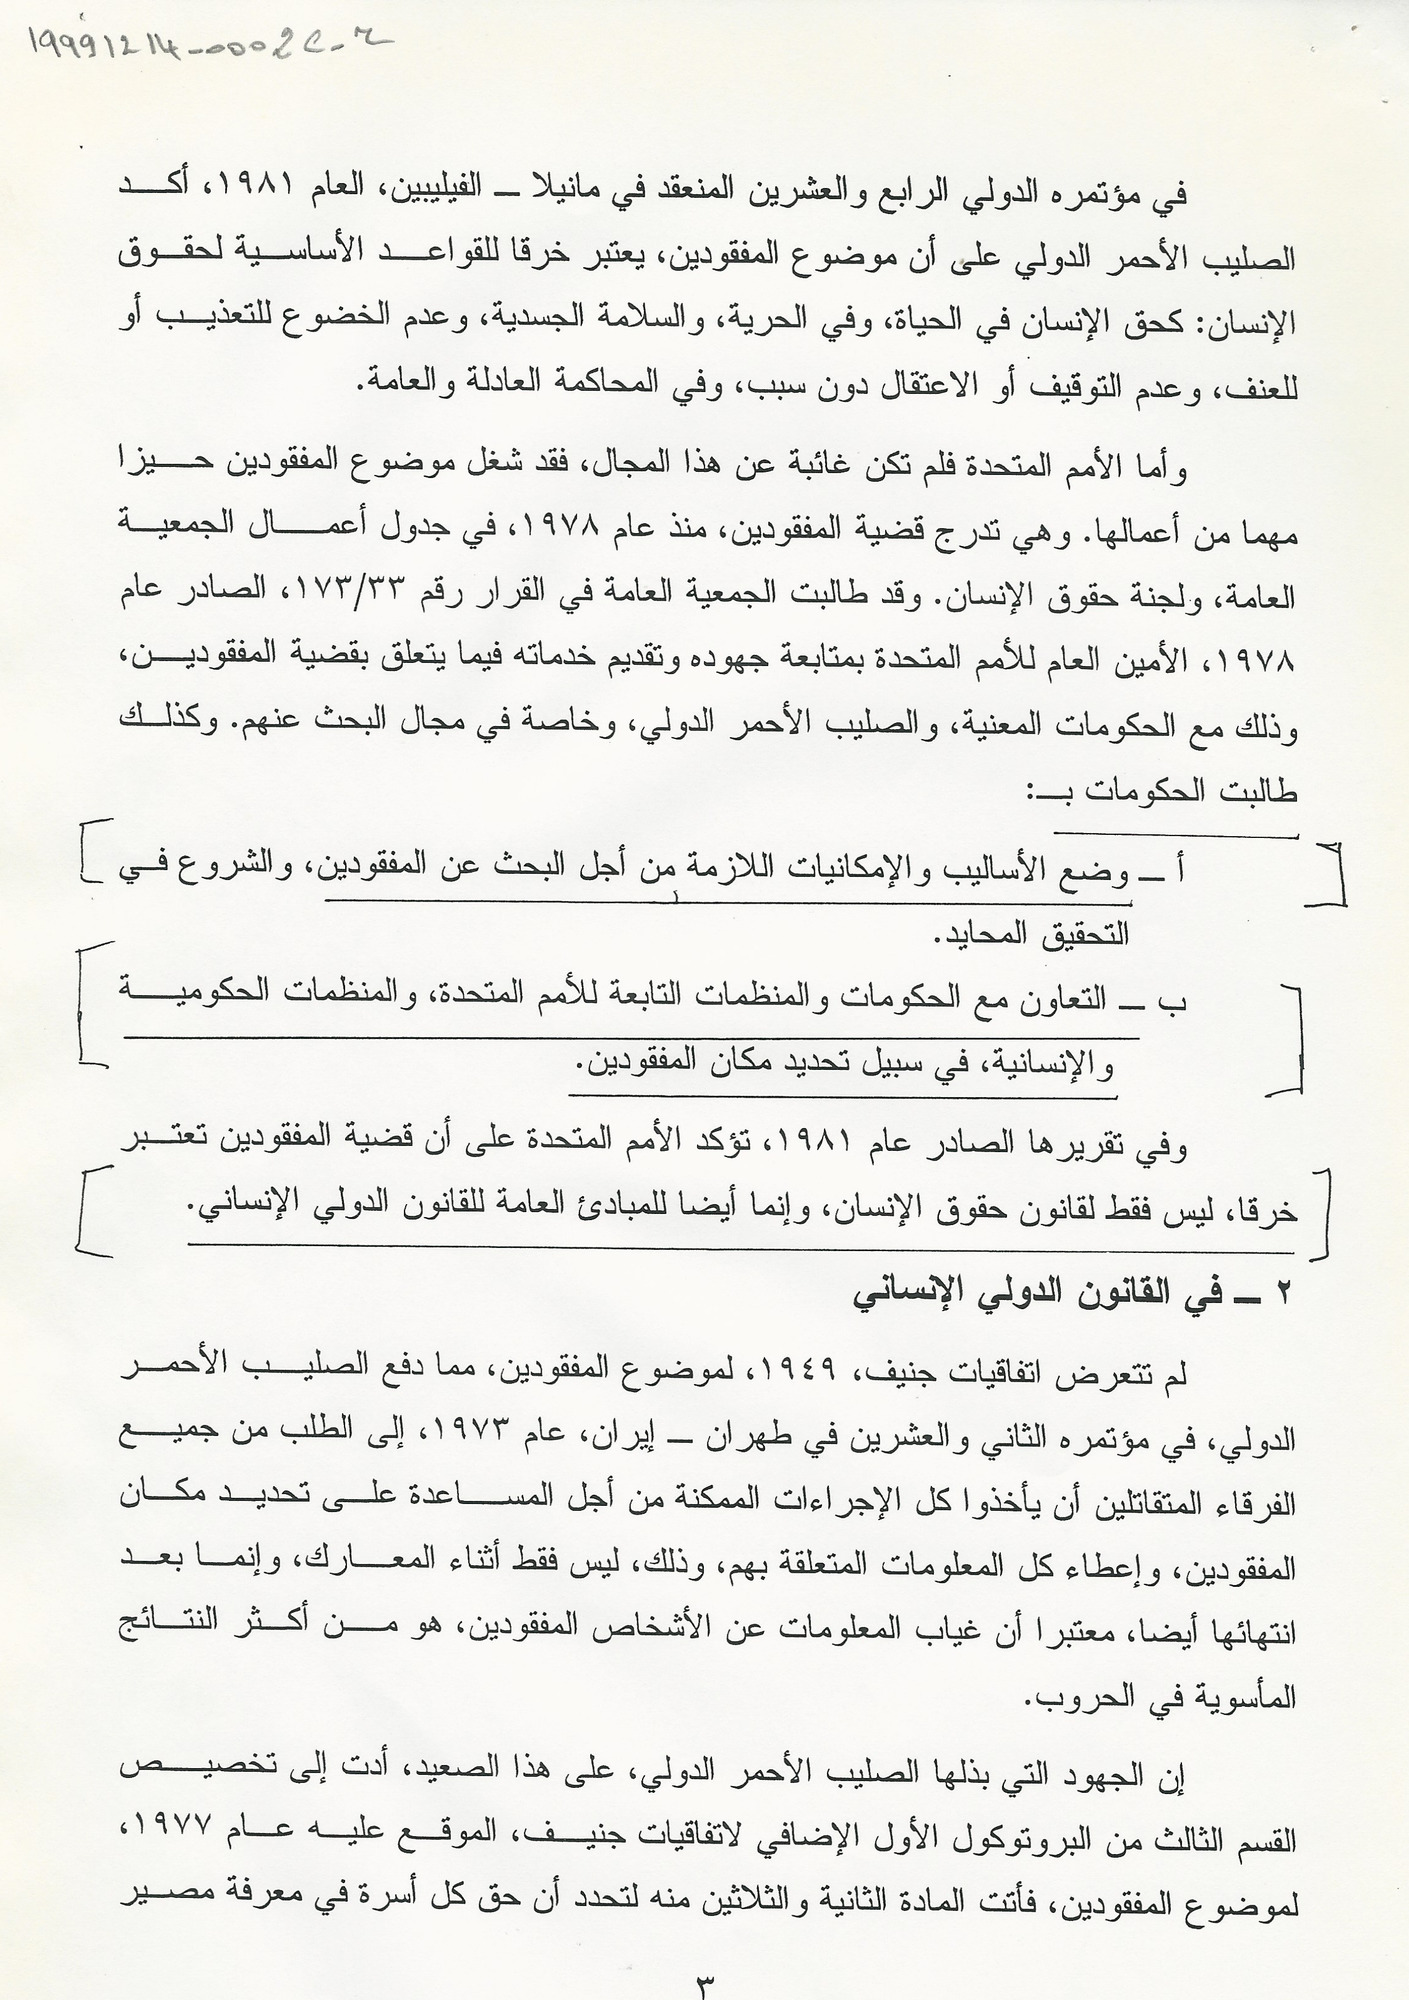 19991214-0002c-r
في مؤتمره الدولي الرابع والعشرين المنعقد في مانيلا ــ الفيليبين، العام ١٩٨١، أكد
الصليب الأحمر الدولي على أن موضوع المفقودين، يعتبر خرقا للقواعد الأساسية لحقوق
الإنسان: كحق الإنسان في الحياة، وفي الحرية، والسلامة الجسدية، وعدم الخضوع للتعذيب أو
للعنف، وعدم التوقيف أو الاعتقال دون سبب، وفي المحاكمة العادلة والعامة.
وأما الأمم المتحدة فلم تكن غائبة عن هذا المجال، فقد شغل موضوع المفقودين حيزا
مهما من أعمالها. وهي تدرج قضية المفقودين، منذ عام ١٩٧٨، في جدول أعمال الجمعية
العامة، ولجنة حقوق الإنسان. وقد طالبت الجمعية العامة في القرار رقم ١٧٣/٣٣، الصادر عام
١٩٧٨، الأمين العام للأمم المتحدة بمتابعة جهوده وتقديم خدماته فيما يتعلق بقضية المفقودين،
وذلك مع الحكومات المعنية، والصليب الأحمر الدولي، وخاصة في مجال البحث عنهم. وكذلك
طالبت الحكومات بـ:
أ ــ وضع الأساليب والإمكانيات اللازمة من أجل البحث عن المفقودين، والشروع في
التحقيق المحايد.
ب ــ التعاون مع الحكومات والمنظمات التابعة للأمم المتحدة، والمنظمات الحكومية
والإنسانية، في سبيل تحديد مكان المفقودين.
وفي تقريرها الصادر عام ١٩٨١، تؤكد الأمم المتحدة على أن قضية المفقودين تعتبر
خرقا، ليس فقط لقانون حقوق الإنسان، وإنما أيضا للمبادئ العامة للقانون الدولي الإنساني.
٢ ــ في القانون الدولي الإنساني
لم تتعرض اتفاقيات جنيف، ١٩٤٩، لموضوع المفقودين، مما دفع الصليب الأحمر
الدولي، في مؤتمره الثاني والعشرين في طهران ــ إيران، عام ١٩٧٣، إلى الطلب من جميع
الفرقاء المتقاتلين أن يأخذوا كل الإجراءات الممكنة من أجل المساعدة على تحديد مكان
المفقودين، وإعطاء كل المعلومات المتعلقة بهم، وذلك، ليس فقط أثناء المعارك، وإنما بعد
انتهائها أيضا، معتبرا أن غياب المعلومات عن الأشخاص المفقودين، هو من أكثر النتائج
المأسوية في الحروب.
إن الجهود التي بذلها الصليب الأحمر الدولي، على هذا الصعيد، أدت إلى تخصيص
القسم الثالث من البروتوكول الأول الإضافي لاتفاقيات جنيف، الموقع عليه عام ١٩٧٧،
لموضوع المفقودين، فأتت المادة الثانية والثلاثين منه لتحدد أن حق كل أسرة في معرفة مصير
٣